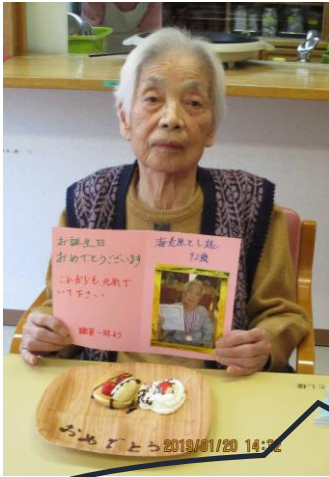 お誕生日
おめでとうございます
これからも元気で
いて下さい
職員一同より
海老原とし様
92歳
おめでとう
2019/01/20 14:32
とし様